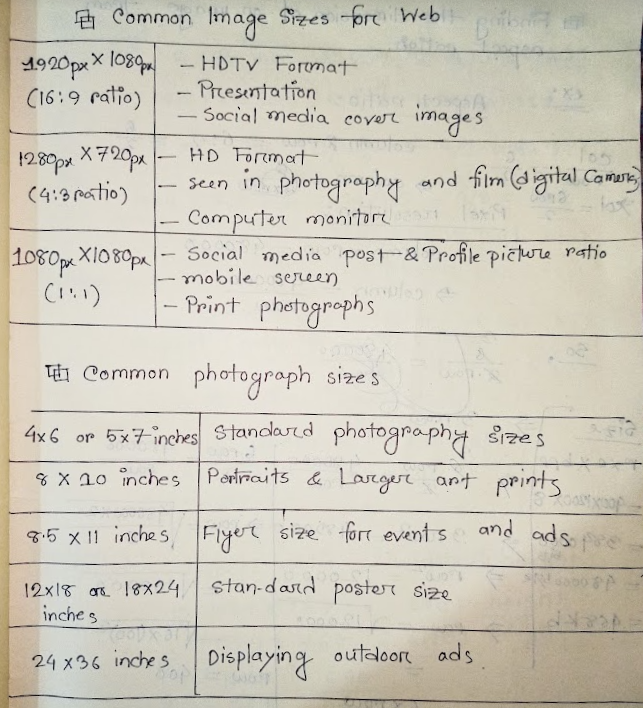 Common Image Sizes for Web
1920px X 1080px
(16:9 ratio)
– HDTV Format
– Presentation
– Social media cover images
1280px X 720px
(4:3 ratio)
– HD Format
– seen in photography and film (digital Camera)
– Computer monitor
1080px X 1080px
(1:1)
– Social media post & Profile picture ratio
– mobile screen
– Print photographs
Common photograph sizes
4x6 or 5x7 inches
Standard photography sizes
8 X 10 inches
Portraits & Larger art prints
8.5 X 11 inches
Flyer size for events and ads.
12x18 or 18x24
inches
stan-dard poster size
24 x 36 inches
Displaying outdoor ads.